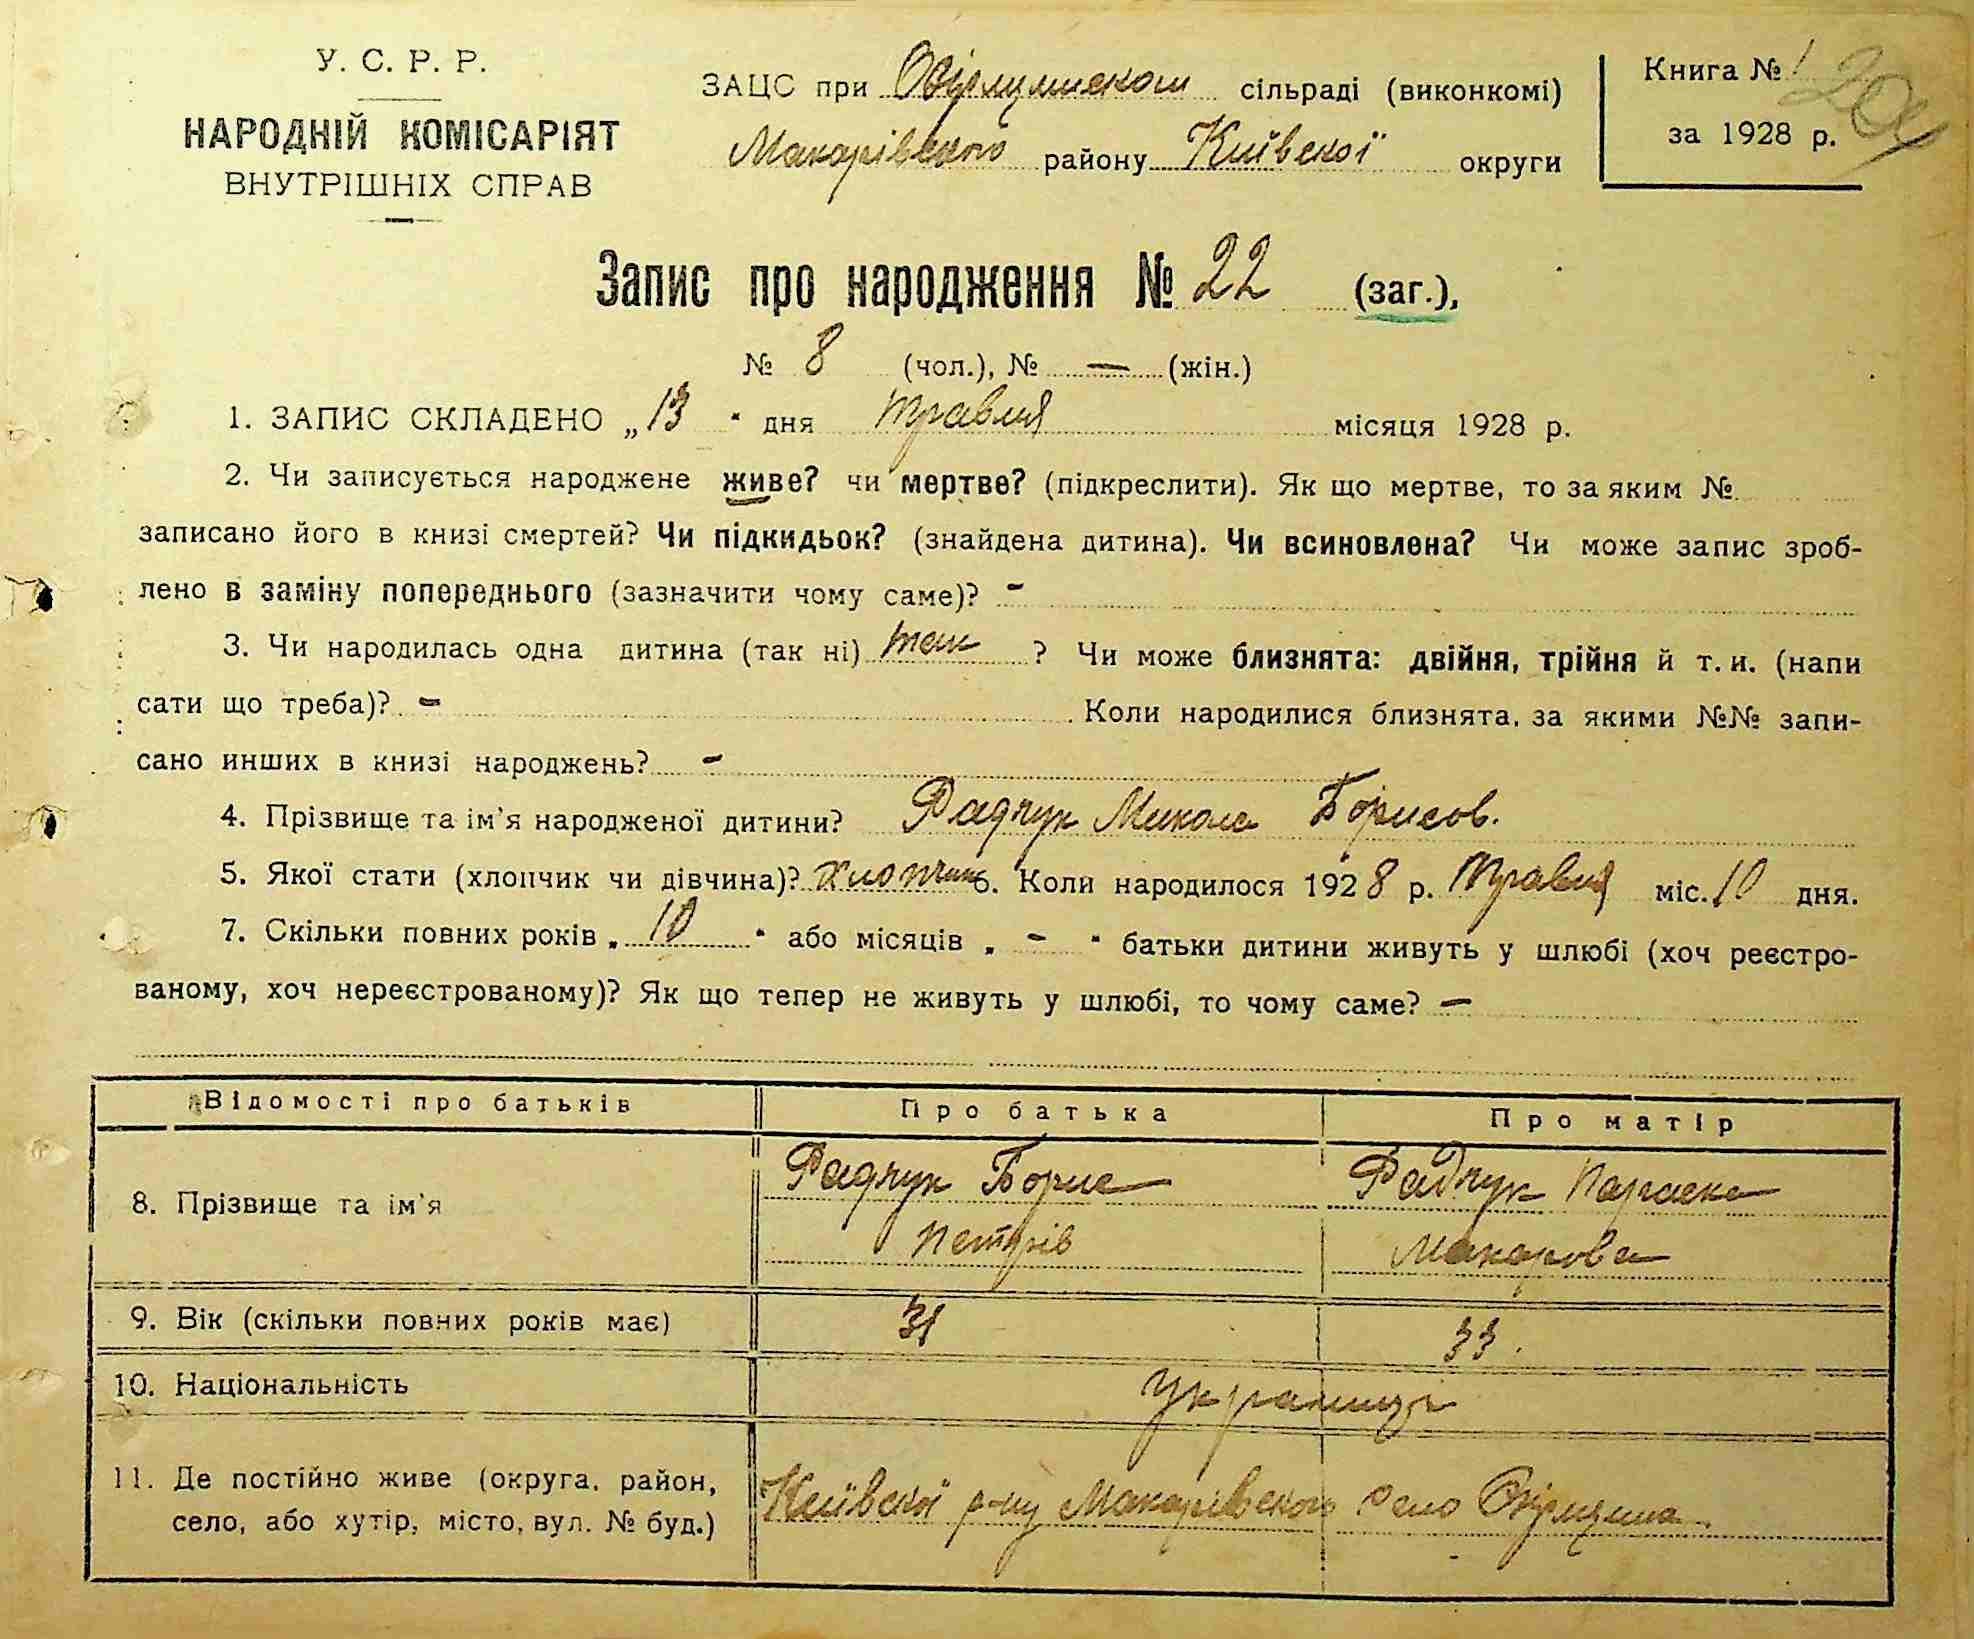 У. С. Р. Р.
НАРОДНІЙ КОМІСАРІЯТ
ВНУТРІШНІХ СПРАВ
ЗАЦС при сільраді (виконкомі)
Макарівського району Київскої округи
Книга № 1
за 1928 р.
Запис про народження № 22 (заг.),
№ 8 (чол.), № — (жін.)
1. ЗАПИС СКЛАДЕНО „13" дня травня місяця 1928 р.
2. Чи записується народжене живе? чи мертве? (підкреслити). Як що мертве, то за яким №
записано його в книзі смертей? Чи підкидьок? (знайдена дитина). Чи всиновлена? Чи може запис зроб-
лено в заміну попереднього (зазначити чому саме)? -
3. Чи народилась одна дитина (так ні) так ? Чи може близнята: двійня, трійня й т. и. (напи
сати що треба)? - Коли народилися близнята, за якими №№ запи-
сано инших в книзі народжень? -
4. Прізвище та ім'я народженої дитини? Радчук Микола Борисов.
5. Якої стати (хлопчик чи дівчина)? хлопчик 6. Коли народилося 1928 р. Травня міс. 10 дня.
7. Скільки повних років „ 10 " або місяців „ - " батьки дитини живуть у шлюбі (хоч реєстро-
ваному, хоч нереєстрованому)? Як що тепер не живуть у шлюбі, то чому саме? —
Відомості про батьків Про батька Про матір
8. Прізвище та ім'я Радчук Борис Петрів Радчук Параска Макарова
9. Вік (скільки повних років має) 31 33.
10. Національність Украинці
11. Де постійно живе (округа, район, село, або хутір, місто, вул. № буд.) Київскої р-ну Макарівского село